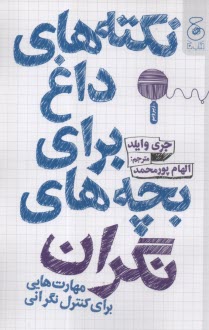 نکته‌های
داغ
برای
بچه‌های
نگران
جری وایلد
مترجم:
الهام پورمحمد
مهارت‌هایی
برای کنترل نگرانی